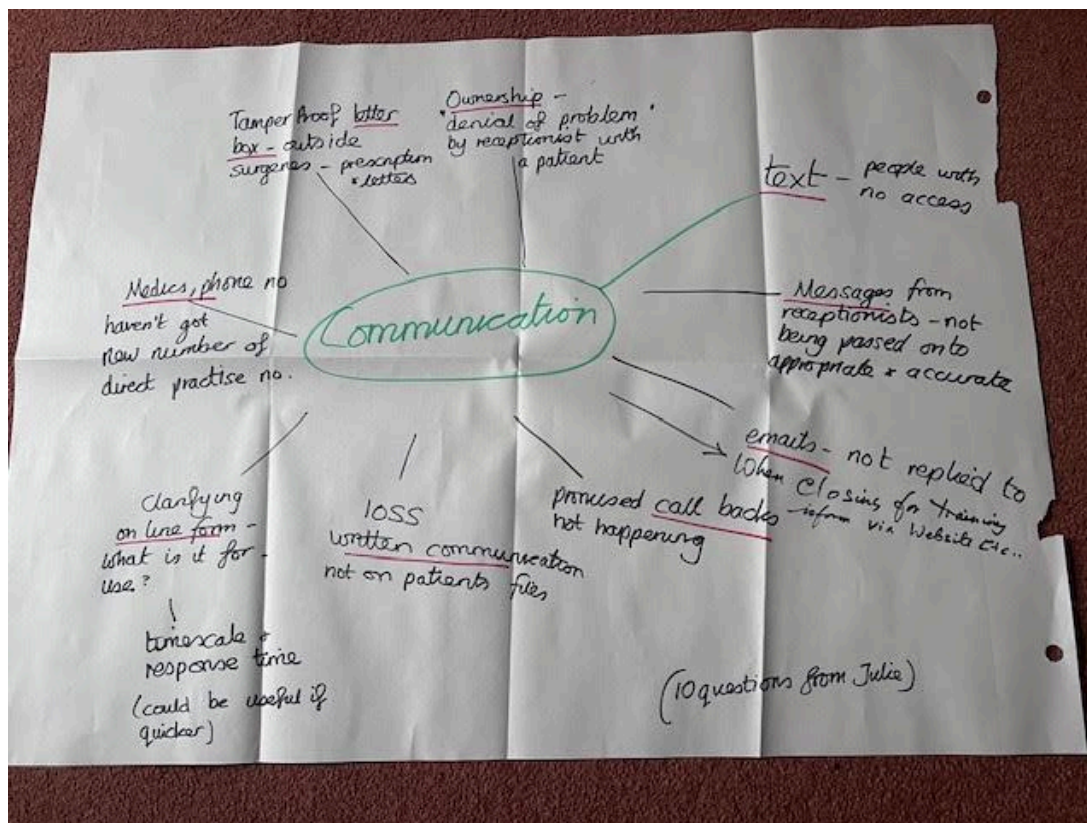 Tamper Proof letter
box - outside
surgeries - prescription
& letters
"Ownership -
denial of problem"
by receptionist with
a patient
text - people with
no access
Communication
Medics, phone no
haven't got
new number of
direct practise no.
Messages from
receptionists - not
being passed onto
appropriate & accurate
emails - not replied to
When closing for training
- inform via Website Etc..
promised call backs
not happening
loss
written communication
not on patients files
Clarifying
on line form -
what is it for -
use?
timescale &
response time
(could be useful if
quicker)
(10 questions from Julie)